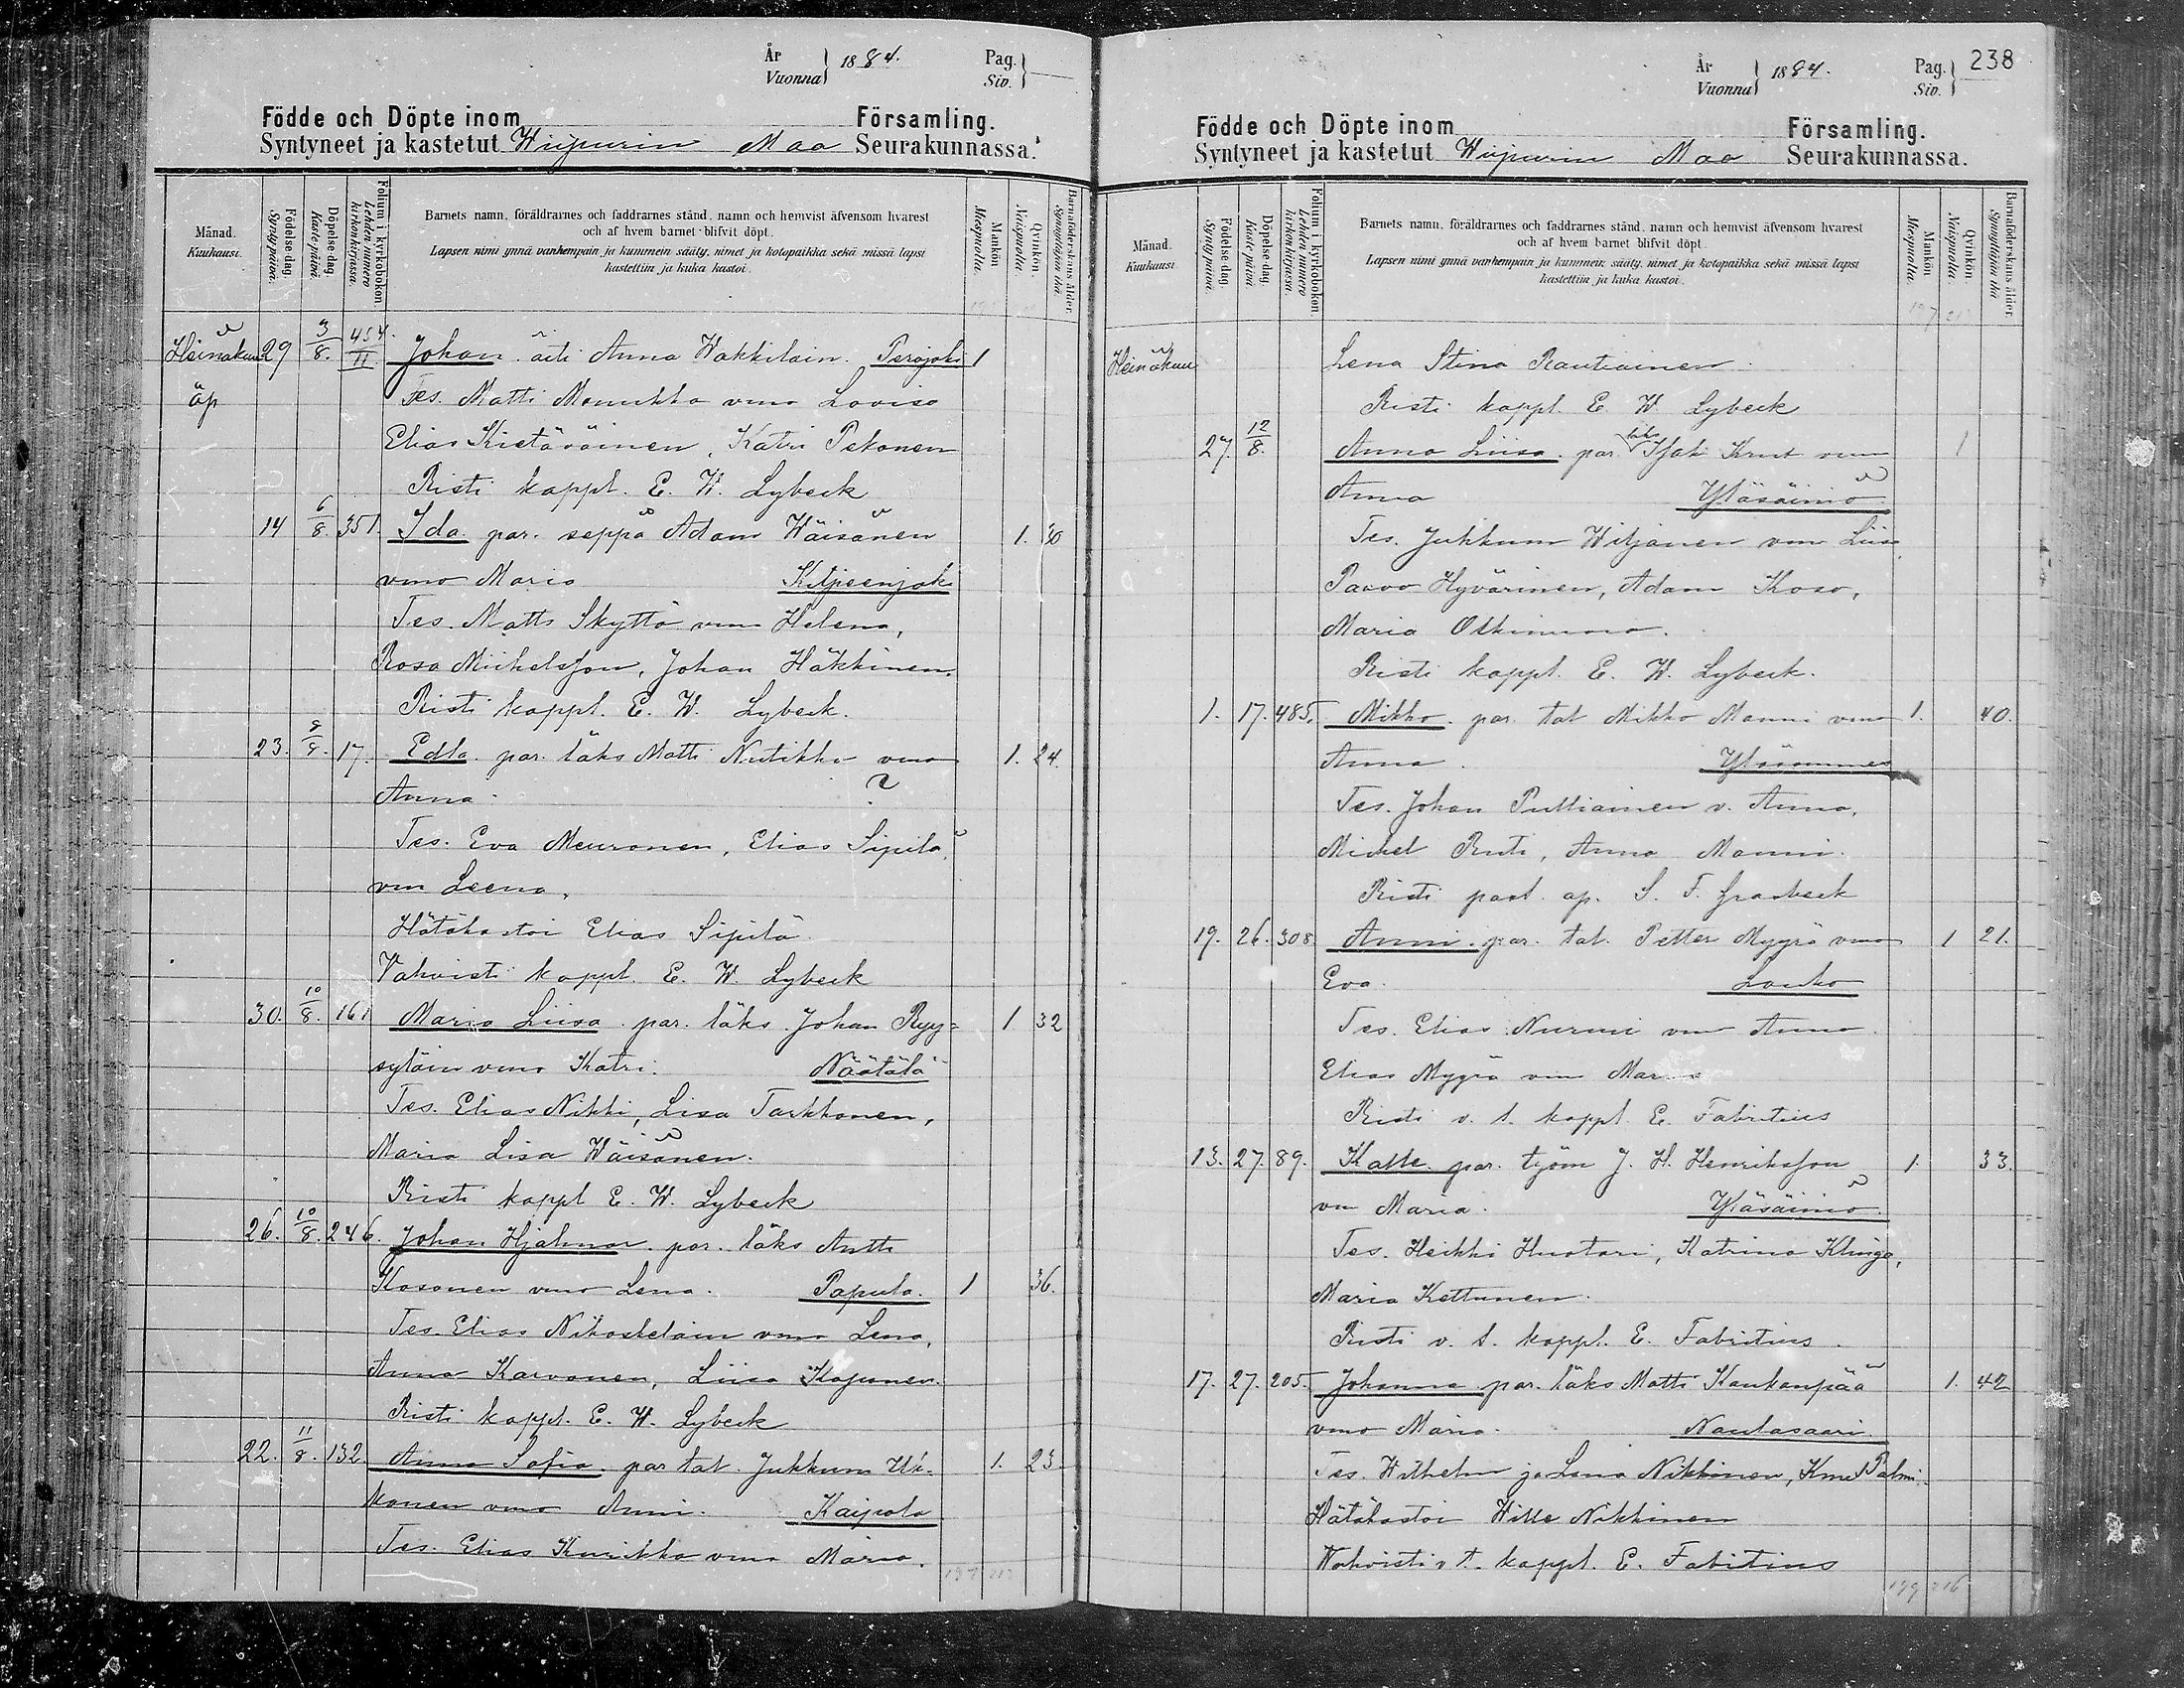 År
Vuonna } 1884.
Pag.
Siv. } —
Födde och Döpte inom Församling.
Syntyneet ja kastetut Wiipurin Maa Seurakunnassa.
Månad.
Kuukausi.
Födelse-dag.
Synty päivä.
Döpelse-dag.
Kaste päivä.
Folium i kyrkoboken.
Lehden numero kirkonkirjassa.
Barnets namn, föräldrarnes och faddrarnes stånd, namn och hemvist äfvensom hvarest
och af hvem barnet blifvit döpt.
Lapsen nimi ynnä vanhempain ja kummein sääty, nimet ja kotopaikka sekä missä lapsi
kastettiin ja kuka kastoi.
Mankön.
Miespuolta.
Qvinkön.
Naispuolta.
Barnaföderskans ålder.
Synnyttäjän ikä.
Heinäkuu 29 3/8. 454/II Johan. äiti Anna Wakkilain. Perojoki 1
äp Tes. Matti Monukka vmo Loviso
Elias Kietäväinen, Katri Pekonen
Risti kappl. E. W. Lybeck
14 6/8. 351. Ida. par. seppä Adam Wäisänen 1. 30
vmo Maria Kilpeenjoki
Tes. Matts Skyttä vmo Helena,
Rosa Michelsson, Johan Häkkinen.
Risti kappl. E. W. Lybeck.
23. 8/8. 17. Edla. par. läks Matti Nutikka vmo 1. 24.
Anna. ?
Tes. Eva Meuronen, Elias Sipilä,
vm Leena,
Hätäkastoi Elias Sipilä.
Vahvisti kappl. E. W. Lybeck
30. 10/8. 161 Maria Liisa. par. läks. Johan Ryy= 1 32
syläin vmo Katri. Näätälä
Tes. Elias Nikki, Lisa Tarkkonen,
Maria Lisa Wäisänen.
Risti kappl E. W. Lybeck
26. 10/8. 246. Johan Hjalmar. par. läks Antti
Kosonen vmo Lena. Papula. 1 36.
Tes. Elias Nikoskelain vmo Lena,
Anna Karvonen, Liisa Kaponen.
Risti kappl. E. W. Lybeck
22. 11/8. 132. Anna Sofia. par tal. Jukkum Uk- 1. 23.
konen vmo Anni. Kaipola
Tes. Elias Kurikka vmo Maria.
År
Vuonna } 1884.
Pag.
Siv. } 238
Födde och Döpte inom Församling.
Syntyneet ja kastetut Wiipurin Maa Seurakunnassa.
Månad.
Kuukausi.
Födelse-dag.
Synty päivä.
Döpelse-dag.
Kaste päivä.
Folium i kyrkoboken.
Lehden numero kirkonkirjassa.
Barnets namn, föräldrarnes och faddrarnes stånd, namn och hemvist äfvensom hvarest
och af hvem barnet blifvit döpt.
Lapsen nimi ynnä vanhempain ja kummein sääty, nimet ja kotopaikka sekä missä lapsi
kastettiin ja kuka kastoi.
Mankön.
Miespuolta.
Qvinkön.
Naispuolta.
Barnaföderskans ålder.
Synnyttäjän ikä.
Heinäkuu Lena Stina Rautiainen.
Risti kappl. E. W. Lybeck
27. 12/8. Anna Liisa. par. läks Isak Krut vmo 1
Anna Yläsäiniö.
Tes. Jukkum Wiljanen vmo Liisa
Paavo Hyvärinen, Adam Koso,
Maria
Risti kappl. E. W. Lybeck.
1. 17. 485. Mikko. par. tal Mikko Manni vmo 1. 40.
Anna. Yläsommee
Tes. Johan Pulliainen v. Anna,
Michel Ruti, Anna Manni.
Risti past. ap. S. F. Granbeck
19. 26. 308. Anni. par. tal. Petter Myyrä vmo 1 21.
Eva. Louko
Tes. Elias Nurmi vmo Anna
Elias Myyrä vmo
Risti v. t. kappl. E. Fabritius
13. 27. 89. Kalle. par. työm J. H. Henriksson 1. 33.
vm Maria. Yläsäiniö.
Tes. Heikki Huotari, Katrina Klinge,
Maria Kettunen.
Risti v. t. kappl. E. Fabritius.
17. 27. 205. Johanna par. läks Matti Kaukanpää 1. 42
vmo Maria. Nautasaari.
Tes. Wilhelm ja Lena Nikkinen, Palmi.
Hätäkastoi Wille Nikkinen
Wahvisti v. t. kappl. E. Fabritius
199 216